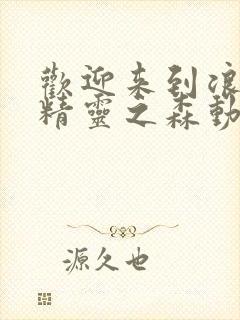 歡迎来到浪
精靈之森動
源久也